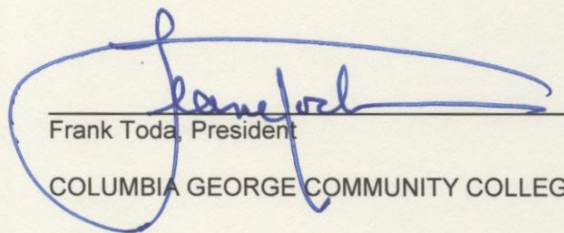 Frank Toda, President
COLUMBIA GEORGE COMMUNITY COLLEG